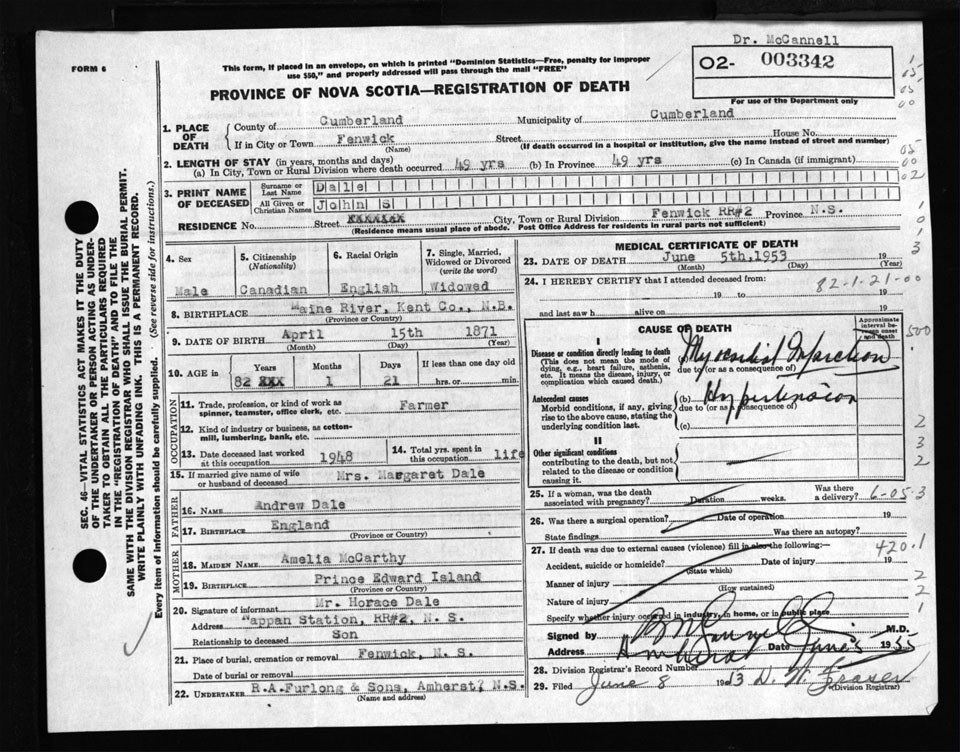 Dr. McCannell
FORM 6
This form, if placed in an envelope, on which is printed "Dominion Statistics—Free, penalty for improper
use $50," and properly addressed will pass through the mail "FREE"
02- 003342
For use of the Department only
PROVINCE OF NOVA SCOTIA—REGISTRATION OF DEATH
1. PLACE OF DEATH
County of Cumberland Municipality of Cumberland
If in City or Town Fenwick Street House No.
(Name) (If death occurred in a hospital or institution, give the name instead of street and number)
2. LENGTH OF STAY (in years, months and days)
(a) In City, Town or Rural Division where death occurred 49 yrs (b) In Province 49 yrs (c) In Canada (if immigrant)
3. PRINT NAME OF DECEASED
Surname or Last Name Dale
All Given or Christian Names John S
RESIDENCE No. Street xxxxxxx City, Town or Rural Division Fenwick RR#2 Province N.S.
(Residence means usual place of abode. Post Office Address for residents in rural parts not sufficient)
4. Sex
Male
5. Citizenship (Nationality)
Canadian
6. Racial Origin
English
7. Single, Married, Widowed or Divorced (write the word)
Widowed
8. BIRTHPLACE Maine River, Kent Co., N.B.
(Province or Country)
9. DATE OF BIRTH April 15th 1871
(Month) (Day) (Year)
10. AGE in Years Months Days If less than one day old
82 xxx 1 21 hrs. or min.
OCCUPATION
11. Trade, profession, or kind of work as spinner, teamster, office clerk, etc. Farmer
12. Kind of industry or business, as cotton-mill, lumbering, bank, etc.
13. Date deceased last worked at this occupation 1948
14. Total yrs. spent in this occupation life
15. If married give name of wife or husband of deceased Mrs. Margaret Dale
FATHER
16. NAME Andrew Dale
17. BIRTHPLACE England
(Province or Country)
MOTHER
18. MAIDEN NAME Amelia McCarthy
19. BIRTHPLACE Prince Edward Island
(Province or Country)
20. Signature of informant Mr. Horace Dale
Address Nappan Station, RR#2, N. S.
Relationship to deceased Son
21. Place of burial, cremation or removal Fenwick, N. S.
Date of burial or removal
22. UNDERTAKER R.A.Furlong & Sons, Amherst, N.S.
(Name and address)
MEDICAL CERTIFICATE OF DEATH
23. DATE OF DEATH June 5th,1953 19
(Month) (Day) (Year)
24. I HEREBY CERTIFY that I attended deceased from:
82-1-21-00
19 to 19
and last saw h alive on 19
CAUSE OF DEATH
Approximate interval between onset and death
I
Disease or condition directly leading to death
(This does not mean the mode of dying, e.g., heart failure, asthenia, etc. It means the disease, injury, or complication which caused death.)
Myocardial Infarction
due to (or as a consequence of)
Antecedent causes
Morbid conditions, if any, giving rise to the above cause, stating the underlying condition last.
(b) Hypertension
due to (or as a consequence of)
(c)
II
Other significant conditions
contributing to the death, but not related to the disease or condition causing it.
25. If a woman, was the death associated with pregnancy? Duration weeks. Was there a delivery? 6-05 3
26. Was there a surgical operation? Date of operation 19
State findings Was there an autopsy?
27. If death was due to external causes (violence) fill in also the following: 420.1
Accident, suicide or homicide? Date of injury 19
(State which)
Manner of injury
(How sustained)
Nature of injury
Specify whether injury occurred in industry, in home, or in public place
Signed by M.D.
Address Amherst Date June 5 19
28. Division Registrar's Record Number
29. Filed June 8 1953 D. W. Fraser
(Division Registrar)
SEC. 46—VITAL STATISTICS ACT MAKES IT THE DUTY
OF THE UNDERTAKER OR PERSON ACTING AS UNDER-
TAKER TO OBTAIN ALL THE PARTICULARS REQUIRED
IN THE "REGISTRATION OF DEATH" AND TO FILE THE
SAME WITH THE DIVISION REGISTRAR WHO SHALL ISSUE THE BURIAL PERMIT.
WRITE PLAINLY WITH UNFADING INK. THIS IS A PERMANENT RECORD.
Every item of information should be carefully supplied. (See reverse side for instructions.)